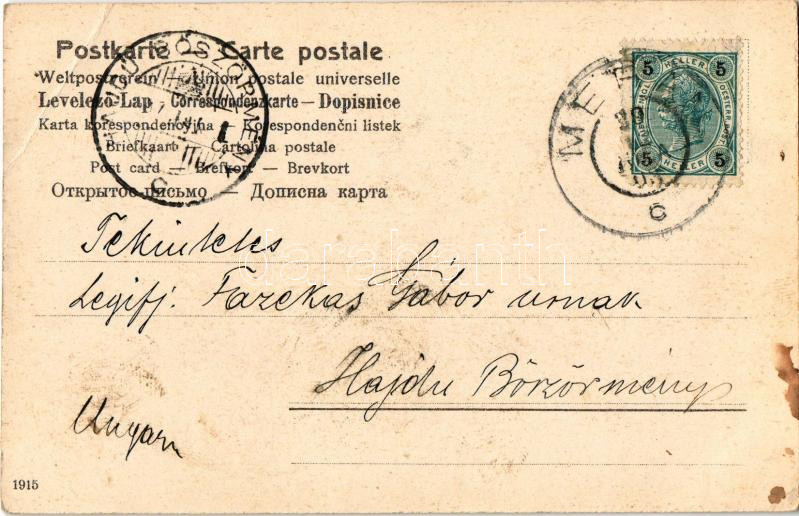 Postkarte Carte postale
Weltpostverein Union postale universelle
Levelező-Lap Correspondenzkarte — Dopisnice
Karta korespondencyjna — Korespondenční listek
Briefkaart — Cartolina postale
Post card — Brefkort — Brevkort
Открытое письмо — Дописна карта
HAJDU BÖSZÖRMÉNY
C
MER
29
c
5 HELLER 5
5 HELLER 5
Tekintetes
Legifj. Fazekas Gábor urnak
Hajdu Börzörmény
Ungarn
darabanth
1915